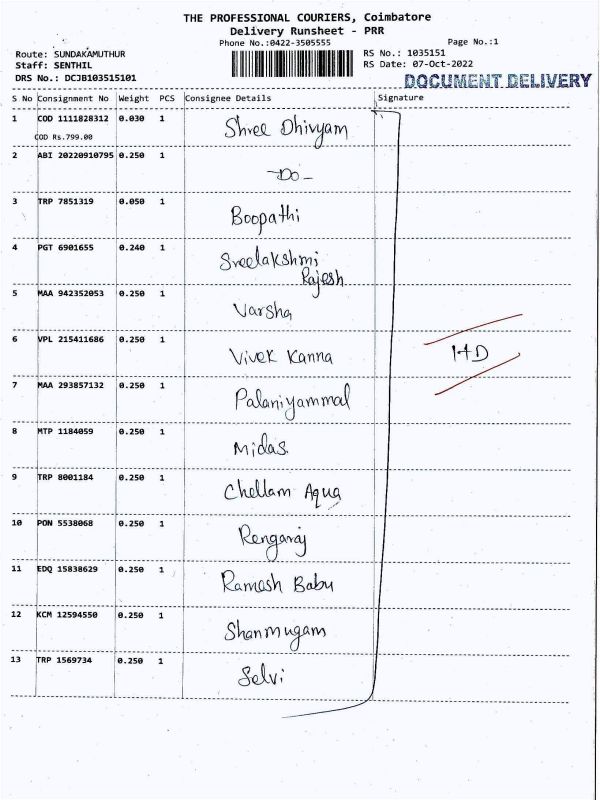 THE PROFESSIONAL COURIERS, Coimbatore
Delivery Runsheet - PRR
Phone No.:0422-3505555 Page No.:1
Route: SUNDAKAMUTHUR RS No.: 1035151
Staff: SENTHIL RS Date: 07-Oct-2022
DRS No.: DCJB103515101 DOCUMENT DELIVERY
S No Consignment No Weight PCS Consignee Details Signature
1 COD 1111828312 0.030 1 Shree Dhivyam
COD Rs.799.00
2 ABI 20220910795 0.250 1 -Do-
3 TRP 7851319 0.050 1 Boopathi
4 PGT 6901655 0.240 1 Sreelakshmi
Rajesh
5 MAA 942352053 0.250 1 Varsha
6 VPL 215411686 0.250 1 Vivek Kanna HD
7 MAA 293857132 0.250 1 Palaniyammal
8 MTP 1184059 0.250 1 Midas
9 TRP 8001184 0.250 1 Chellam Aqua
10 PON 5538068 0.250 1 Rengaraj
11 EDQ 15838629 0.250 1 Ramesh Babu
12 KCM 12594550 0.250 1 Shanmugam
13 TRP 1569734 0.250 1 Selvi